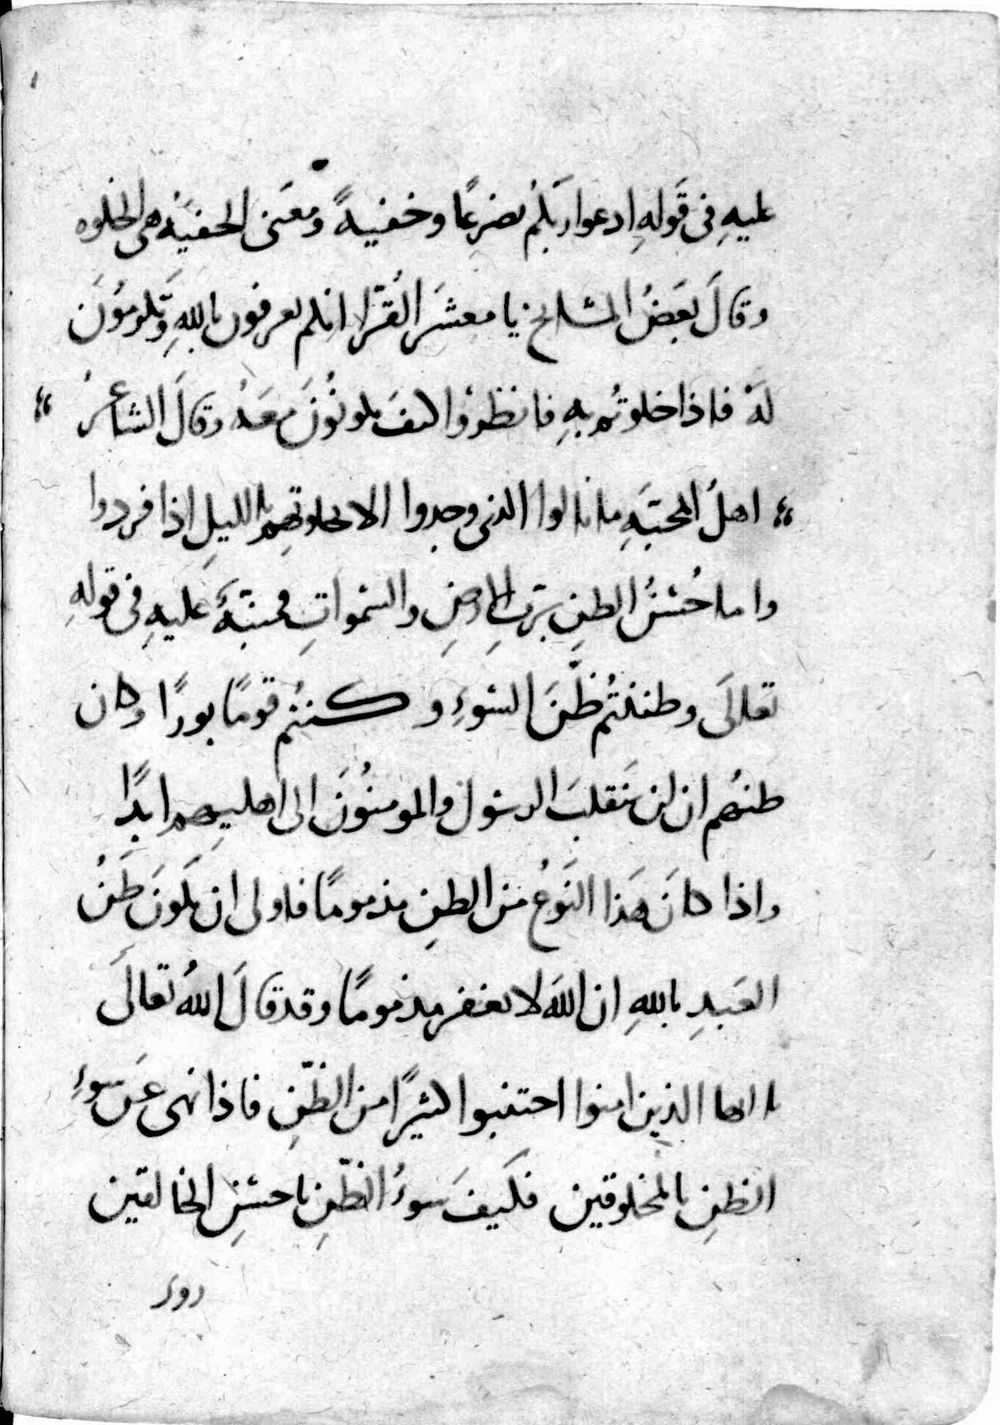 عليهِ في قَولهِ ادعوا ربَّكمُ تضرعًا وخفيةً ومعَنى الخفيَّة هى الخلوه
وقالَ بعَضُ المشايخ يا معشَر القُرّا انكم تعرفون باللهِ وتكرمُونَ
لهُ فاذا خلوتُم بهِ فانظرُوا كيفَ تكونُونَ معَهُ وقالَ الشاعرُ
اهلُ المحبَّةِ ما نالوا الذي وجدوا الا بخلوتِهِم بالليلِ اذا فردوا
واما حُسْنُ الظنِ بربِ الارضِ والسَّمواتِ فمنبّهُ عليهِ في قولهِ
تعالَى وظننتُم ظنَّ السَّوءِ وكنتُم قومًا بورًا وكان
ظنهُم ان لن يَنقلبَ الرسُولُ والمومنُونَ الى اهليهِم ابدًا
واذا كانَ هَذا النَّوعُ من الظنِ مذمومًا فاولى ان يكَونَ ظَنُ
العَبدِ باللهِ ان اللهَ لا يغفر مذمومًا وقد قالَ اللهُ تعالَى
يا ايها الذين امنوا اجتنبوا كثيرًا من الظّنِ فاذا نهى عَن سوءِ
الظنِ بالمخلوقين فكَيفَ سوءُ الظّنِ باحسَنِ الخالقين
روى